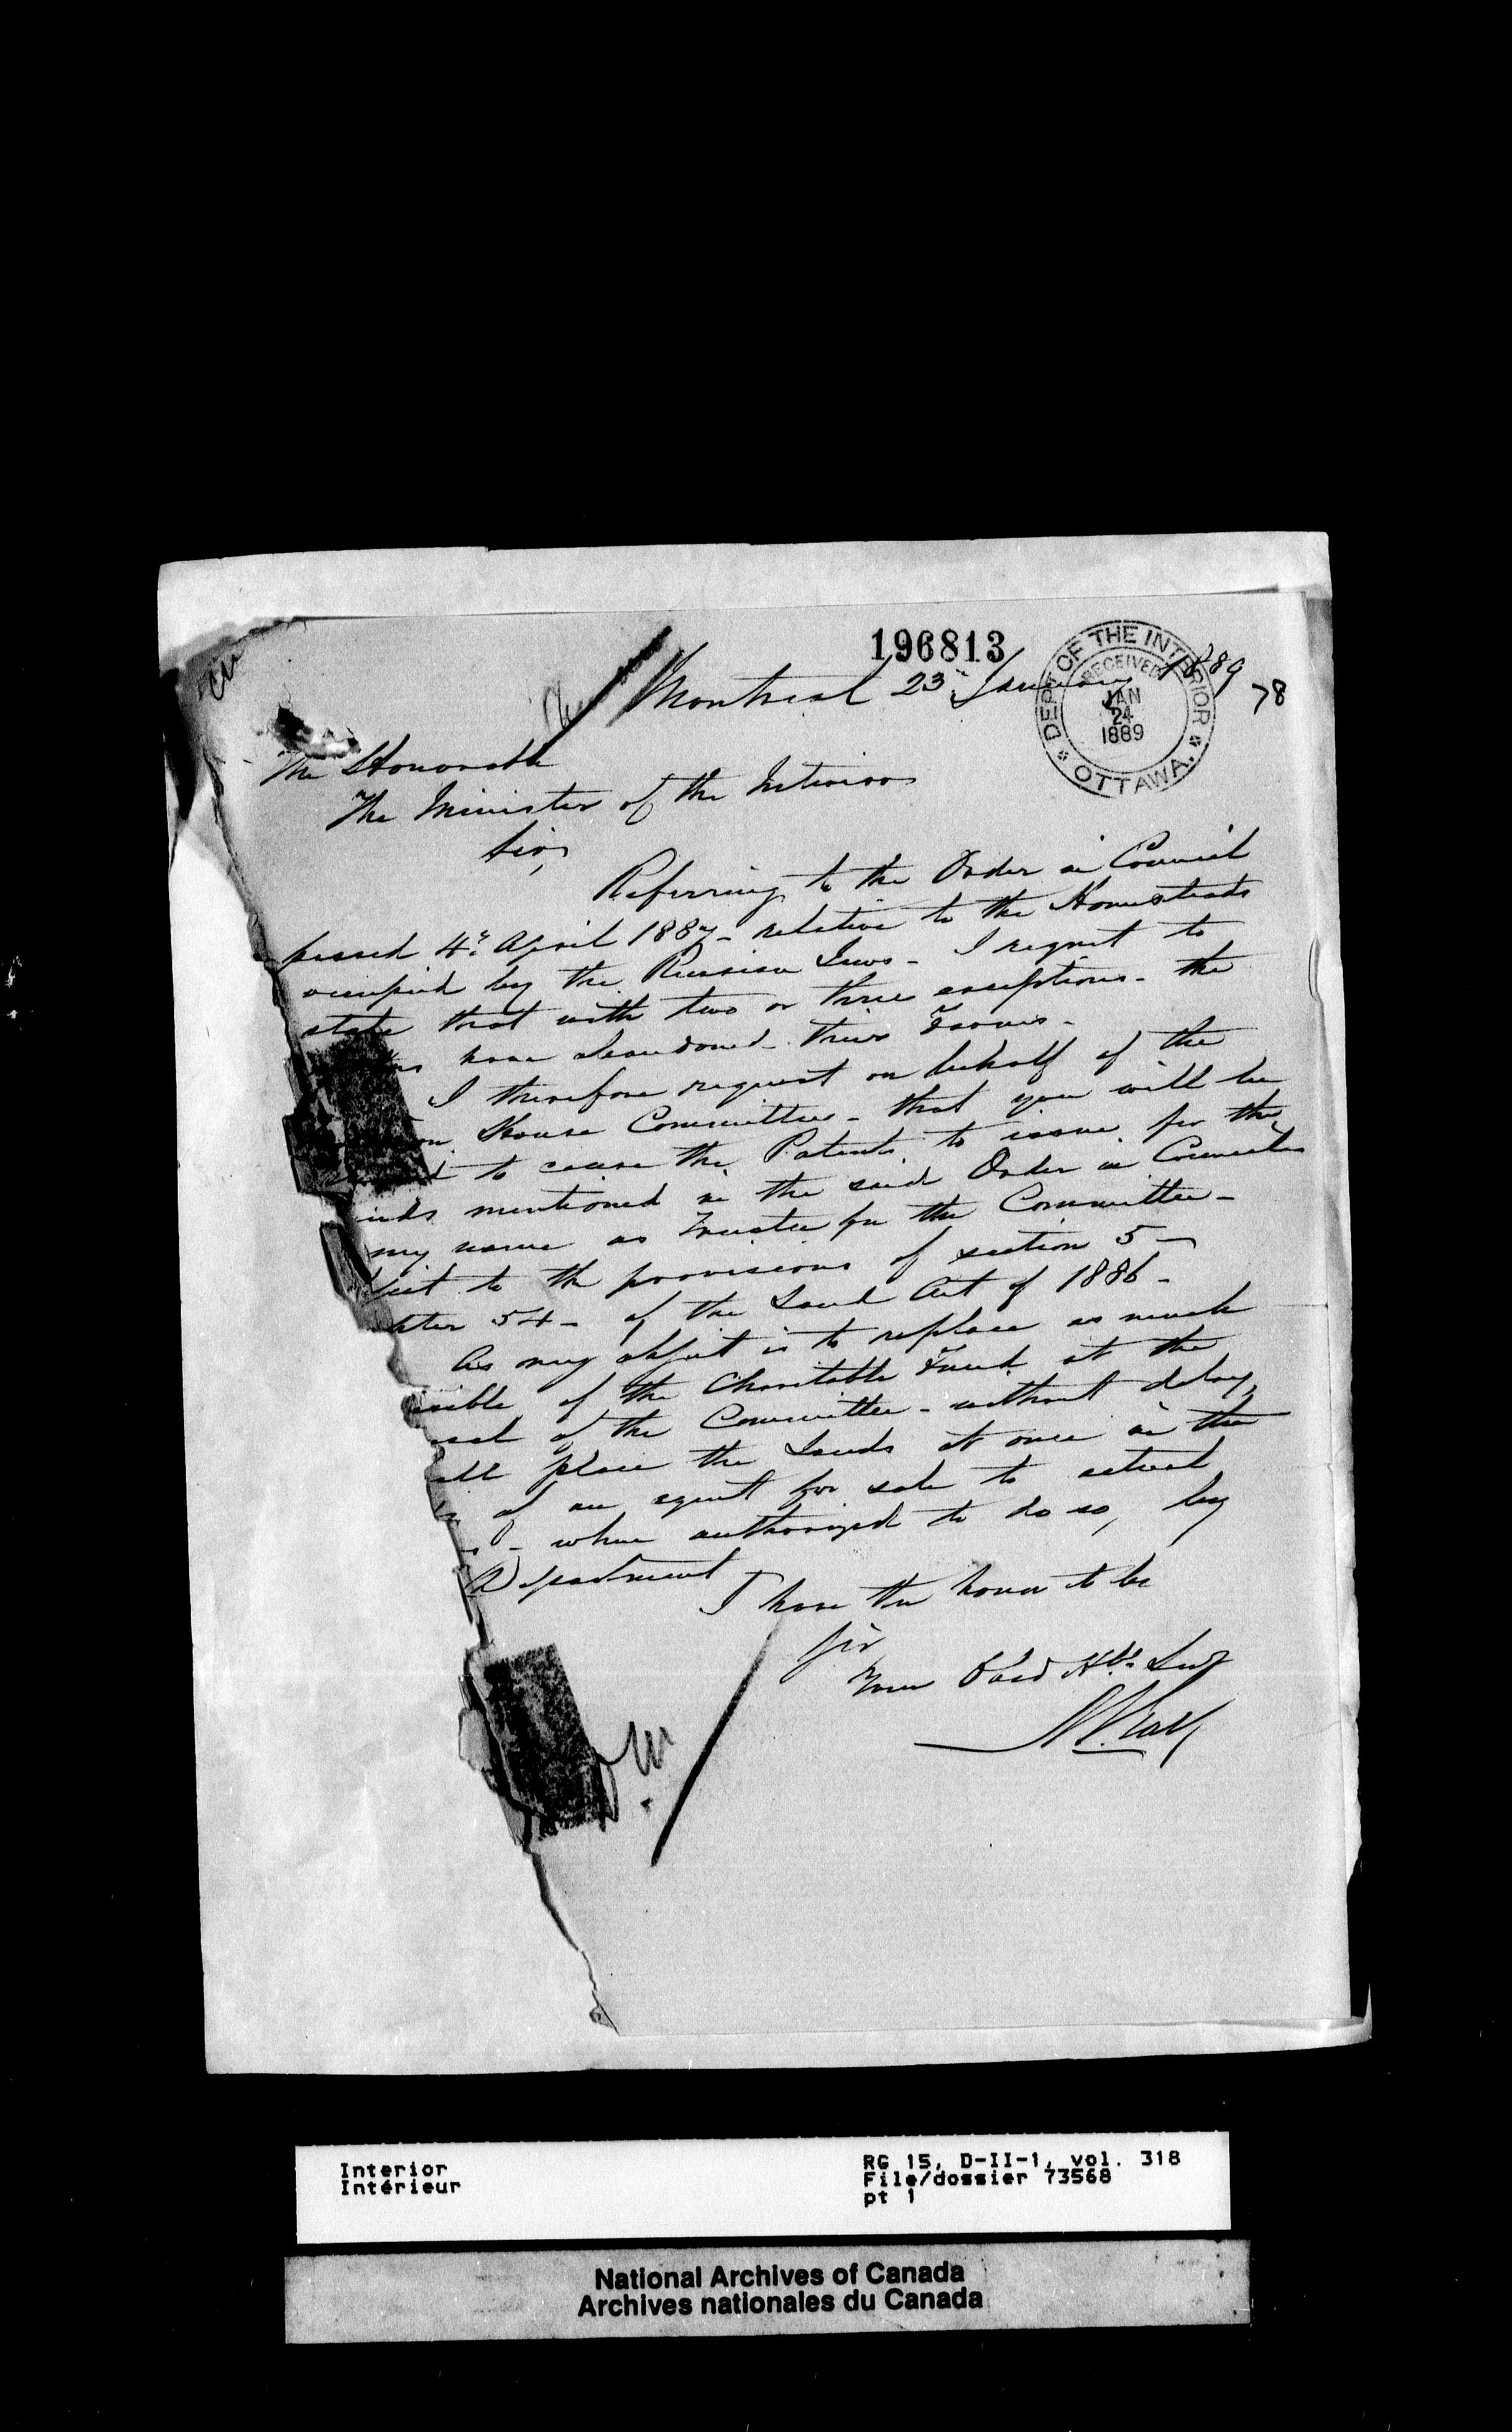 196813
Montreal 23d January 1889
78
DEPT OF THE INTERIOR
RECEIVED
JAN
24
1889
OTTAWA.
The Honorable
The Minister of the Interior
Sir,
Referring to the Order in Council
passed 4th April 1887 - relative to the Homesteads
occupied by the Russian Jews - I regret to
state that with two or three exceptions - the
have abandoned their Farms -
I therefore request on behalf of the
on House Committee - that you will be
to cause the Patents to issue for the
nds mentioned in the said Order in Council
my name as Trustee for the Committee -
ject to the provisions of section 5 -
pter 54 - of the Land Act of 1886 -
As my object is to replace as much
ssible of the Charitable Fund at the
osal of the Committee - without delay,
all place the Lands at once in the
of an agent for sale to actual
- when authorized to do so, by
Department
I have the honor to be
Sir
Your Obed Hble Sevt
A T Galt
Interior
Intérieur
RG 15, D-II-1, vol. 318
File/dossier 73568
pt 1
National Archives of Canada
Archives nationales du Canada